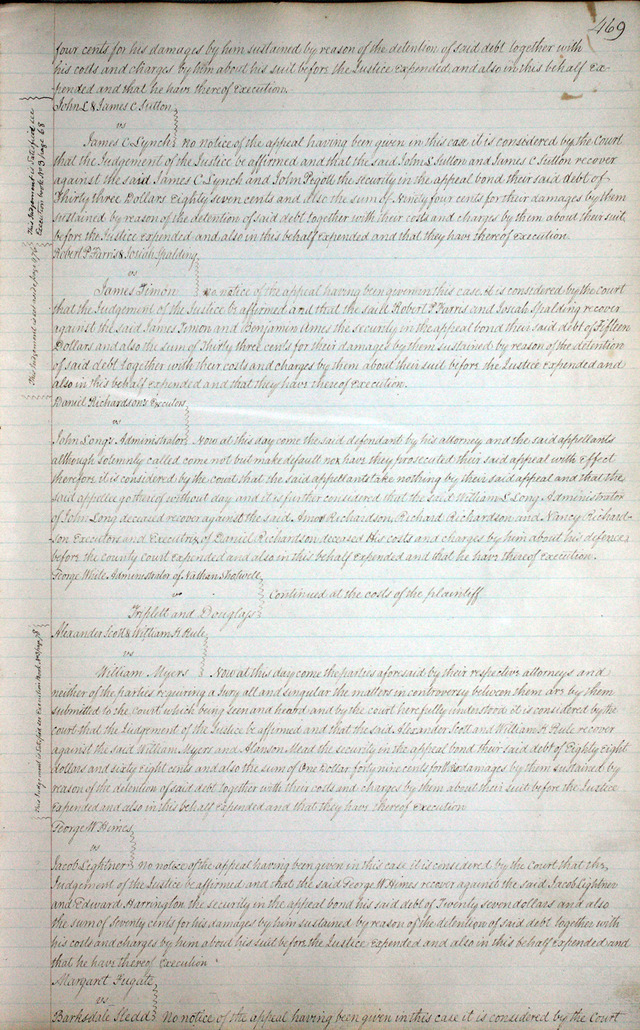 469
four cents for his damages by him sustained by reason of the detention of said debt together with
his costs and charges by him about his suit before the Justice Expended and also in this behalf Ex-
pended and that he have thereof Execution.
John L & James C Sutton
vs
James C. Lynch no notice of the appeal having been given in this case it is considered by the Court
that the Judgement of the Justice be affirmed and that the said John L Sutton and James C Sutton recover
against the said James C Lynch and John Pigott the security in the appeal bond their said debt of
Thirty three Dollars Eighty seven cents and also the sum of Ninety four cents for their damages by them
sustained by reason of the detention of said debt together with their costs and charges by them about their suit
before the Justice Expended and also in this behalf Expended and that they have thereof Execution.
This Judgement is Satisfied see
Execution book No 3 page 68
Robert P Farris & Josiah Spalding
vs
James Timon no notice of the appeal having been given in this case it is considered by the court
that the Judgement of the Justice be affirmed and that the said Robert P. Farris and Josiah Spalding recover
against the said James Timon and Benjamin Ames the security in the appeal bond their said debt of Fifteen
Dollars and also the sum of Thirty three cents for their damages by them sustained by reason of the detention
of said debt together with their costs and charges by them about their suit before the Justice Expended and
also in this behalf Expended and that they have thereof Execution.
This Judgement
Daniel Richardson's Executors
vs
John Long's Administrator Now at this day come the said defendant by his attorney and the said appellants
although solemnly called come not but make default nor have they prosecuted their said appeal with Effect
therefore it is considered by the court that the said appellants take nothing by their said appeal and that the
said appellee go thereof without day and it is further considered that the said William L Long Administrator
of John Long deceased recover against the said Amos Richardson, Richard Richardson and Nancy Richard-
son Executors and Executrix of Daniel Richardson deceased His costs and charges by him about his defence
before the county court Expended and also in this behalf Expended and that he have thereof Execution.
George While Administrator of Nathan Sholwell
vs Continued at the costs of the plaintiff
Triplett and Douglass
Alexander Scott & William K Rule
vs
William Myers Now at this day come the parties aforesaid by their respective attorneys and
neither of the parties requiring a Jury all and singular the matters in controversy between them are by them
submitted to the Court which being seen and heard and by the court here fully understood it is considered by the
court that the Judgement of the Justice be affirmed and that the said Alexander Scott and William K Rule recover
against the said William Myers and Alanson Mead the security in the appeal bond their said debt of Eighty Eight
dollars and sixty Eight cents and also the sum of One Dollar forty nine cents for their damages by them sustained by
reason of the detention of said debt together with their costs and charges by them about their suit before the Justice
Expended and also in this behalf Expended and that they have thereof Execution
This Judgement is Satisfied see Execution Book
George W Himes
vs
Jacob Lightner no notice of the appeal having been given in this case it is considered by the Court that the
Judgement of the Justice be affirmed and that the said George W Himes recover against the said Jacob Lightner
and Edward Harrington the security in the appeal bond his said debt of Twenty seven dollars and also
the sum of seventy cents for his damages by him sustained by reason of the detention of said debt together with
his costs and charges by him about his suit before the Justice Expended and also in this behalf Expended and
that he have thereof Execution
Margaret Fugate
vs
Barksdale Sledd No notice of the appeal having been given in this case it is considered by the Court